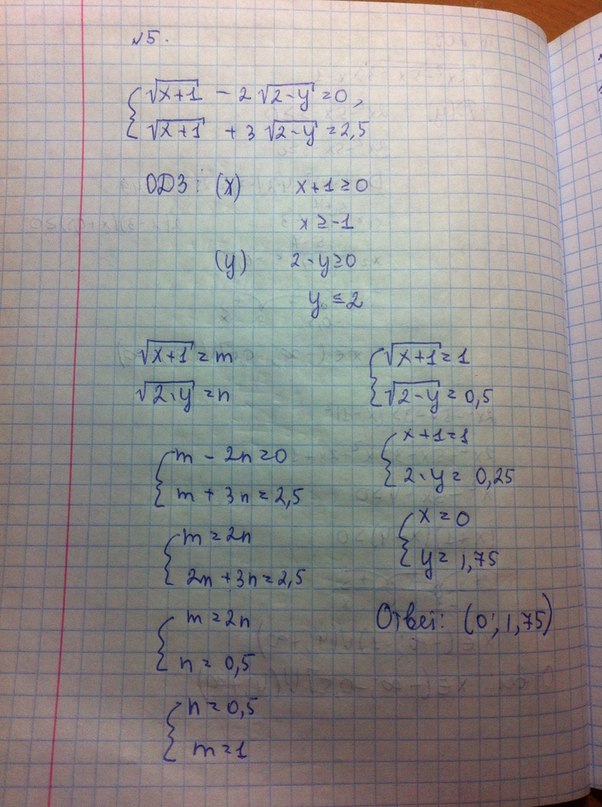 №5.
√(x+1) − 2√(2−y) = 0,
√(x+1) + 3√(2−y) = 2,5
ОДЗ: (x) x+1 ≥ 0
x ≥ −1
(y) 2−y ≥ 0
y ≤ 2
√(x+1) = m
√(2−y) = n
m − 2n = 0
m + 3n = 2,5
m = 2n
2n + 3n = 2,5
m = 2n
n = 0,5
n = 0,5
m = 1
√(x+1) = 1
√(2−y) = 0,5
x+1 = 1
2−y = 0,25
x = 0
y = 1,75
Ответ: (0; 1,75)